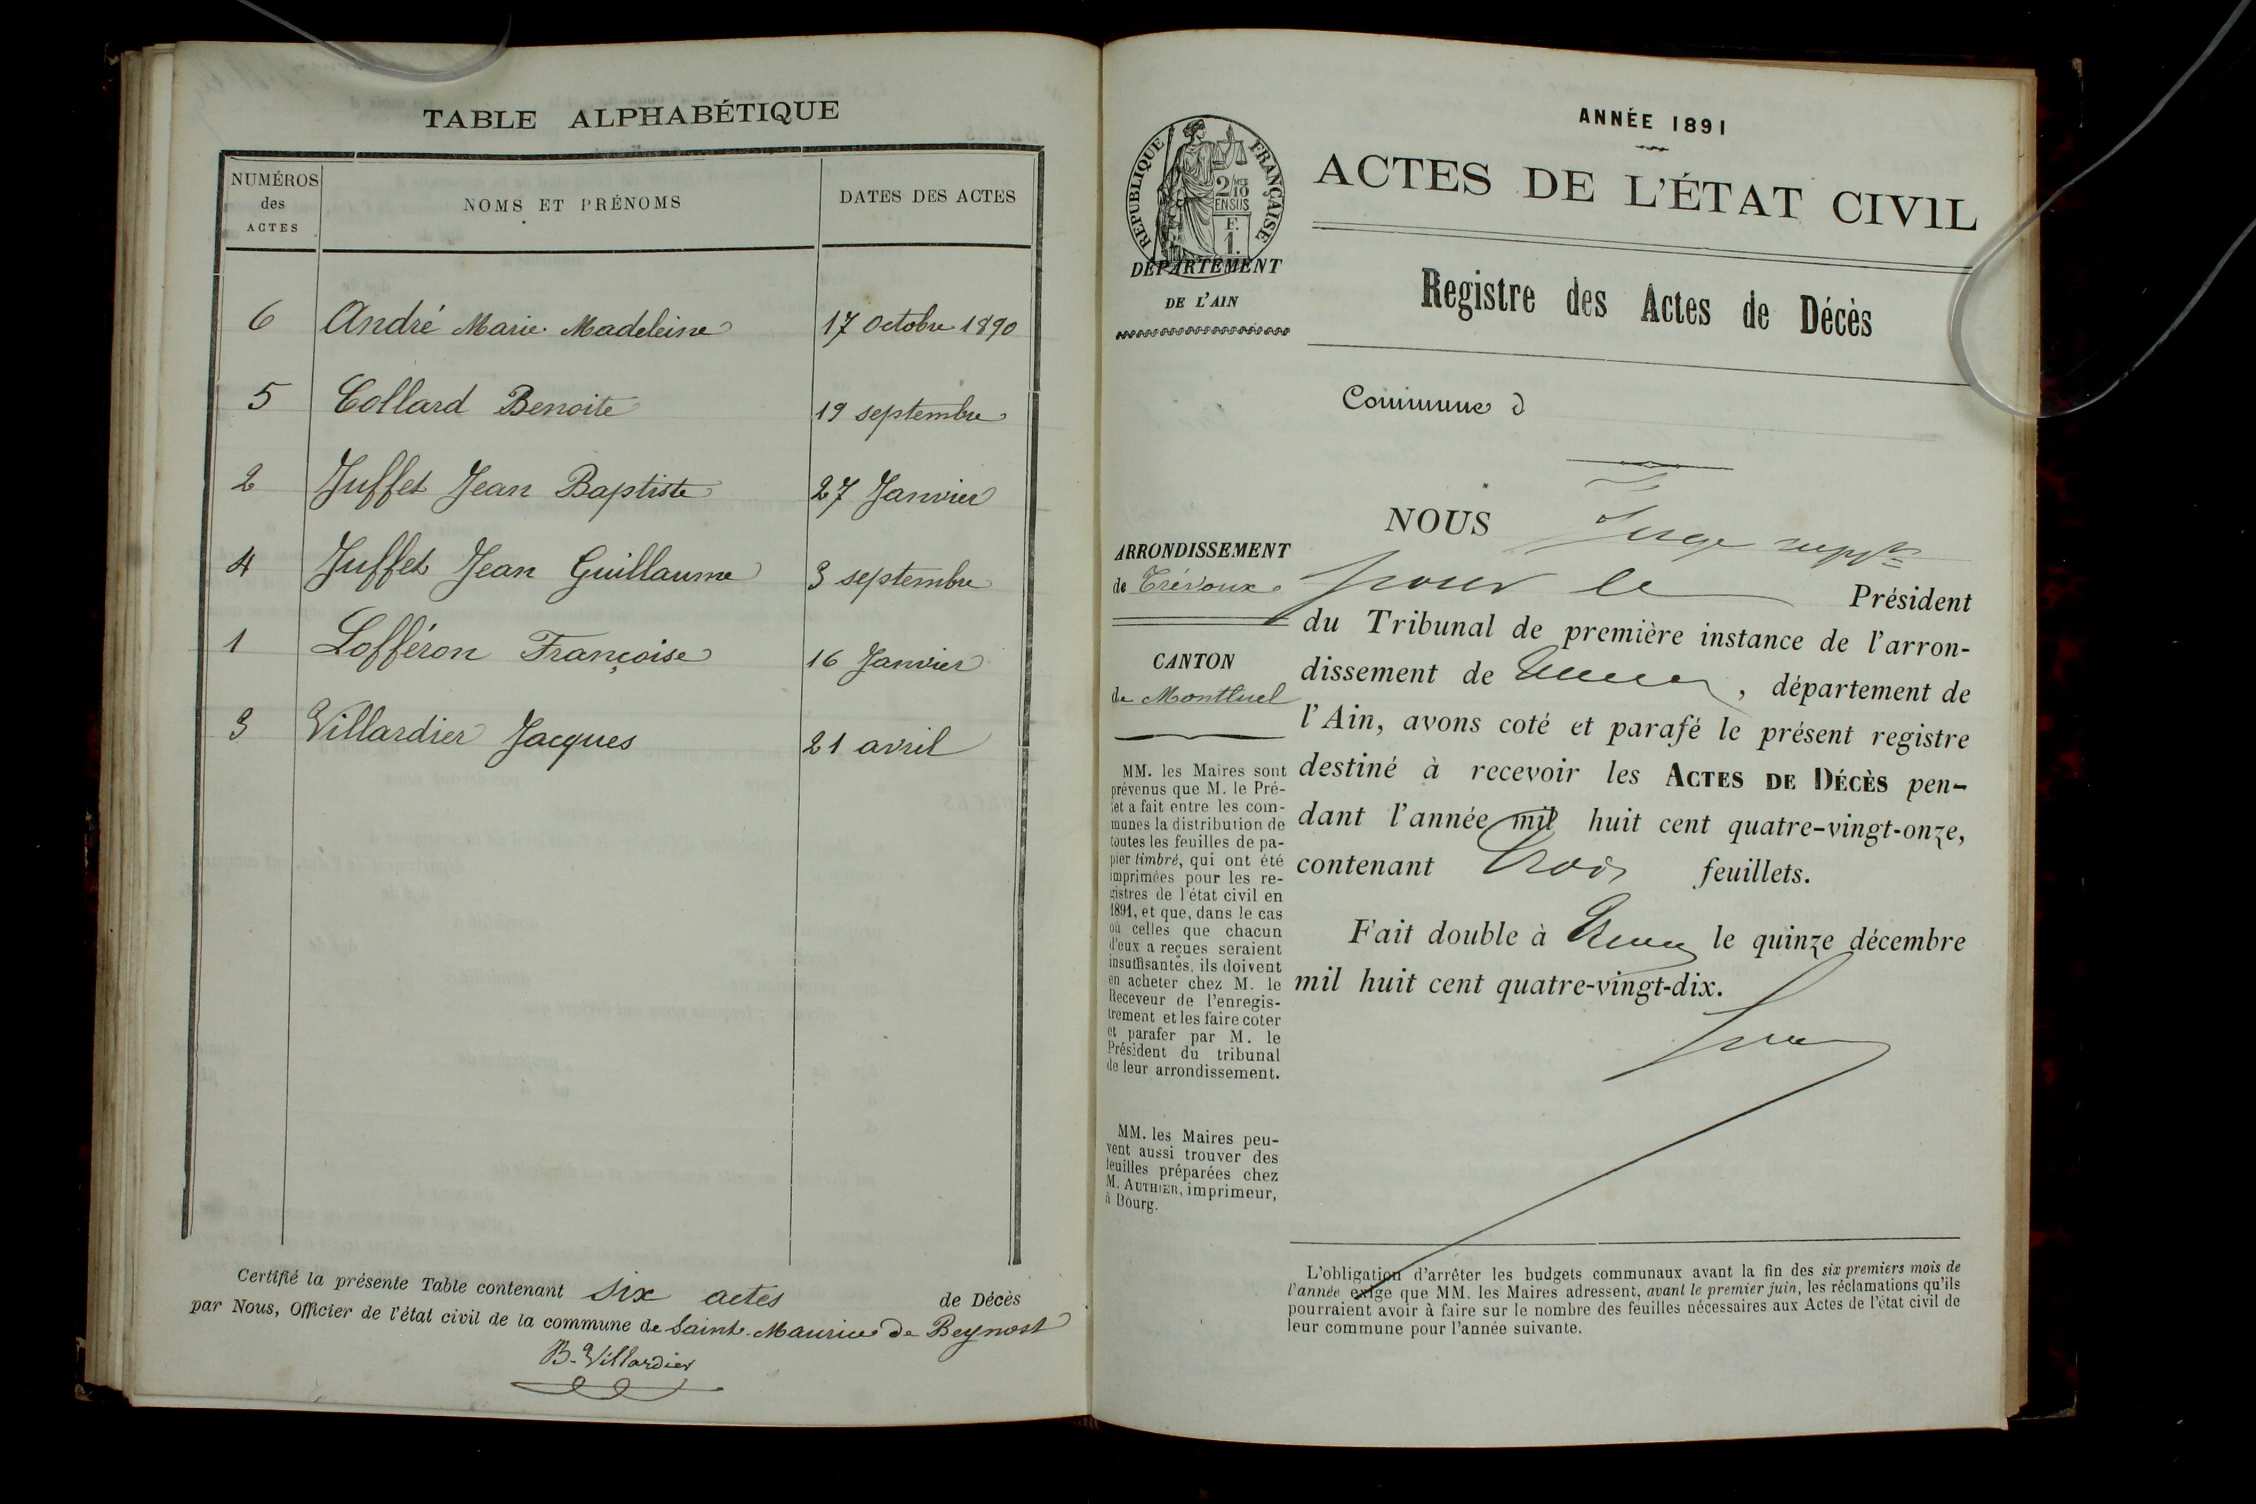 TABLE ALPHABÉTIQUE
NUMÉROS des ACTES
NOMS ET PRÉNOMS
DATES DES ACTES
6 André Marie Madeleine 17 Octobre 1890
5 Collard Benoite 19 septembre
2 Juffet Jean Baptiste 27 Janvier
4 Juffet Jean Guillaume 3 septembre
1 Lofféron Françoise 16 Janvier
3 Villardier Jacques 21 avril
Certifié la présente Table contenant six actes de Décès
par Nous, Officier de l'état civil de la commune de Saint-Maurice de Beynost
B. Villardier
RÉPUBLIQUE FRANÇAISE
2/10 EN SUS
F. 1.
DÉPARTEMENT
DE L'AIN
ARRONDISSEMENT
de Trévoux
CANTON
de Montluel
MM. les Maires sont
prévenus que M. le Pré-
fet a fait entre les com-
munes la distribution de
toutes les feuilles de pa-
pier timbré, qui ont été
imprimées pour les re-
gistres de l'état civil en
1891, et que, dans le cas
où celles que chacun
d'eux a reçues seraient
insuffisantes, ils doivent
en acheter chez M. le
Receveur de l'enregis-
trement et les faire coter
et parafer par M. le
Président du tribunal
de leur arrondissement.
MM. les Maires peu-
vent aussi trouver des
feuilles préparées chez
M. AUTHIER, imprimeur,
à Bourg.
ANNÉE 1891
ACTES DE L'ÉTAT CIVIL
Registre des Actes de Décès
Commune d
NOUS Juge suppt
pour le Président
du Tribunal de première instance de l'arron-
dissement de , département de
l'Ain, avons coté et parafé le présent registre
destiné à recevoir les ACTES DE DÉCÈS pen-
dant l'année mil huit cent quatre-vingt-onze,
contenant trois feuillets.
Fait double à le quinze décembre
mil huit cent quatre-vingt-dix.
L'obligation d'arrêter les budgets communaux avant la fin des six premiers mois de
l'année exige que MM. les Maires adressent, avant le premier juin, les réclamations qu'ils
pourraient avoir à faire sur le nombre des feuilles nécessaires aux Actes de l'état civil de
leur commune pour l'année suivante.